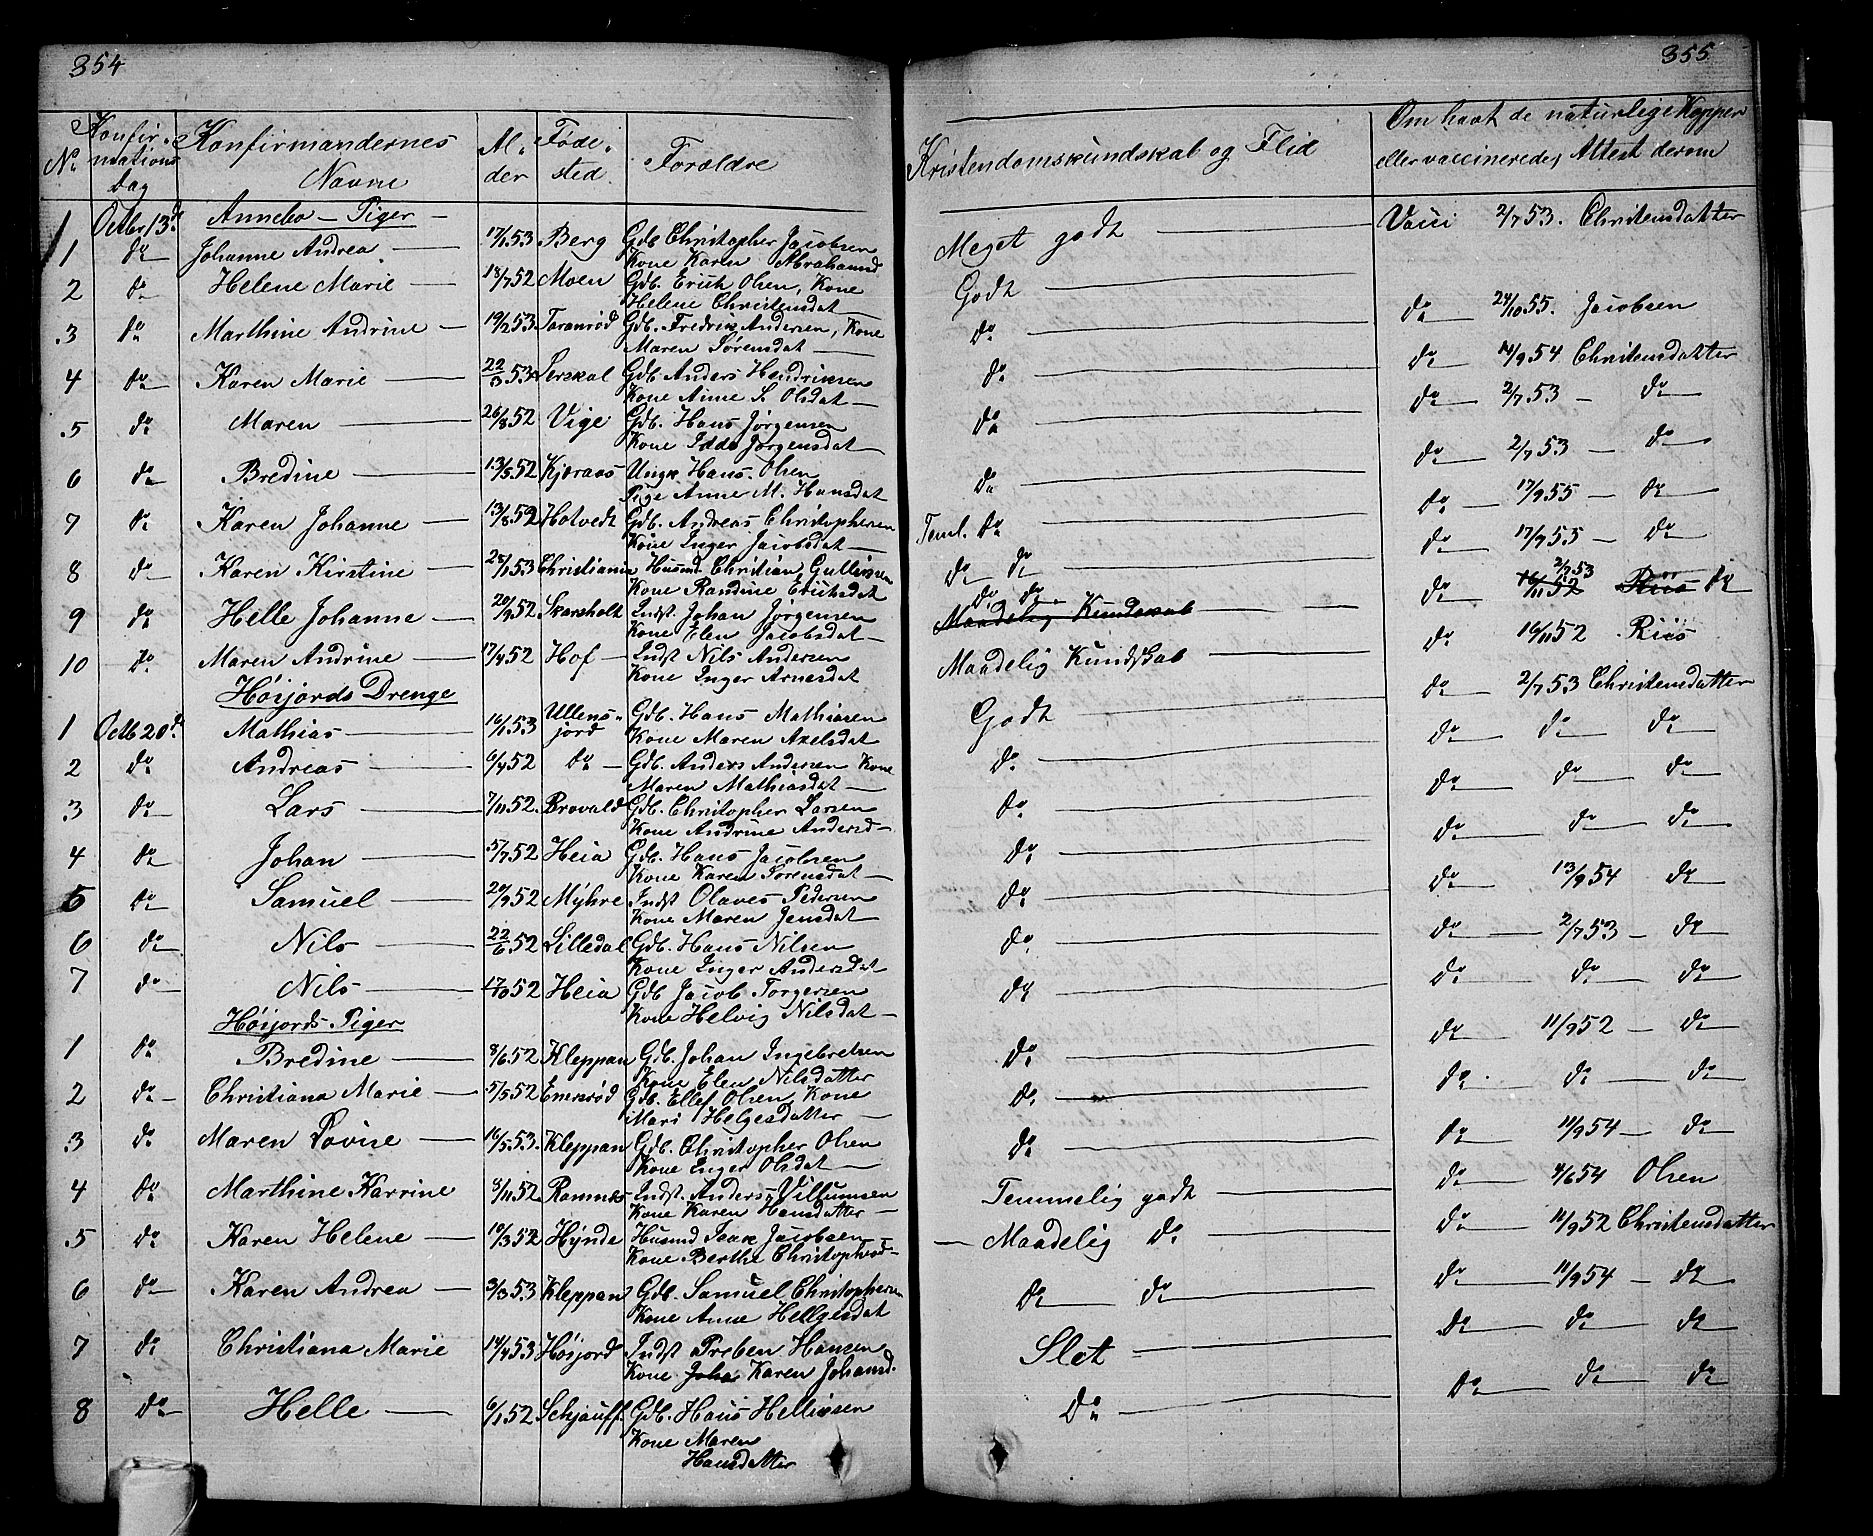 354
No
Konfir-
mations
Dag
Konfirmandernes
Navne
Al-
der
Føde-
sted
Forældre
Octbr 13de
Annebo – Piger
1 do Johanne Andrea 17/1 53 Berg Gdb Christopher Jacobsen
Kone Karen Abrahamsd
2 do Helene Marie 18/7 52 Moen Gdb. Erich Olsen, Kone
Helene Christensdat
3 do Marthine Andrine 19/2 53 Taranrød Gdb. Fredrik Andersen, Kone
Maren Sørensdat
4 do Karen Marie 22/3 53 Gdb. Anders Hendriksen
Kone Anne S. Olsdat
5 do Maren 26/8 52 Vige Gdb. Hans Jørgensen
Kone Idde Jørgensdat
6 do Bredine 13/5 52 Kjæraas Ungk Hans Olsen
Pige Anne M. Hansdat
7 do Karen Johanne 13/8 52 Hotvedt Gdb. Andreas Christophersen
Kone Inger Jacobsdat
8 do Karen Kirstine 28/1 53 Christiania Husmd Christian Gulliksen
Kone Randine Erichsdat
9 do Helle Johanne 20/9 52 Skarsholt Indst. Johan Jørgensen
Kone Elen Jacobsdat
10 do Maren Andrine 17/4 52 Hof Indst Nils Andersen
Kone Inger Arnesdat
Høijords Drenge
1 Octb 20de Mathias 16/1 53 Ullens-
jord Gdb. Hans Mathiasen
Kone Maren Axelsdat
2 do Andreas 6/4 52 do Gdb. Anders Andersen Kone
Maren Mathiasdat
3 do Lars 7/11 52 Brovald Gdb. Christopher Larsen
Kone Andrine Andersd
4 do Johan 5/7 52 Heia Gdb. Hans Jacobsen
Kone Karen Sørensdat
5 do Samuel 20/9 52 Myhre Indst Olaves Pedersen
Kone Maren Jensdat
6 do Nils 22/6 52 Lilledal Gdb. Hans Nilsen
Kone Inger Andersdat
7 do Nils 52 Heia Gdb Jacob Torgersen
Kone Helvig Nilsdat
Høijords Piger
1 do Bredine 8/6 52 Kleppan Gdb. Johan Ingebretsen
Kone Elen Nilsdatter
2 do Christiana Marie 5/5 52 Gdb. Ellef Olsen Kone
Mari Helgesdatter
3 do Maren Lovise 16/5 53 Kleppan Gdb. Christopher Olsen
Kone Inger Olsdat
4 do Marthine Karrine 8/11 52 Ramnes Indst. Anders Villumsen
Kone Karen Hansdatter
5 do Karen Helene 10/3 52 Hynde Husmd Isak Jacobsen
Kone Berthe Christophersd
6 do Karen Andrea 3/3 53 Kleppan Gdb. Samuel Christophersen
Kone Anne Hellgesdat
7 do Christiana Marie 14/4 53 Høijord Indst Preben Hansen
Kone Joha Karen Johansd.
8 do Helle 6/1 52 Schjauff. Gdb. Hans Hellissen
Kone Maren
Hansdatter
355
Kristendomskundskab og Flid
Om havt de naturlige Kopper
eller vaccinerede, Attest derom
Meget godt Vacci 2/7 53. Christensdatter
Godt do 24/10 55. Jacobsen
do do 14/9 54 Christensdatter
do do 2/7 53 do
do do 2/7 53 do
do do 17/9 55 do
Teml. do do 17/9 55 do
do do do 16/11 52 2/7 53 Riis do
do do
Maadelig Kundskab do 16/11 52 Riis
Maadelig Kundskab do 2/7 53 Christensdatter
Godt do do do
do do do do
do do do do
do do 13/9 54 do
do do 2/7 53 do
do do do do
do do 11/9 52 do
do do do do
do do 11/9 54 do
do do 4/6 54 Olsen
Temmelig godt do 11/9 52 Christensdatter
Maadelig do do 11/9 54 do
do do do do do
Slet do do do
do